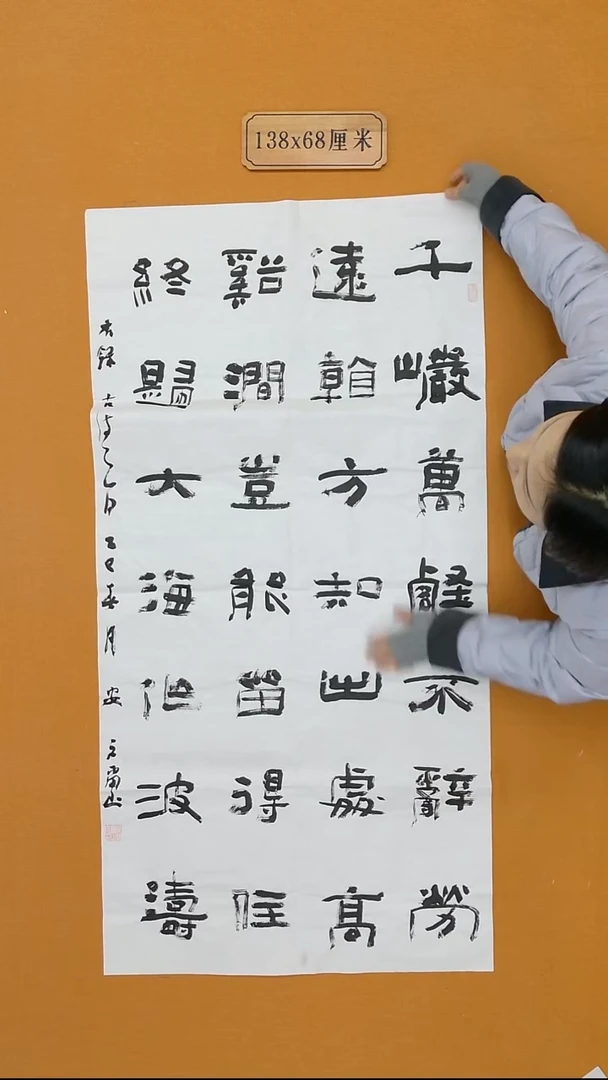 138x68厘米
千巖萬壑不辭勞
遠看方知出處高
谿澗豈能留得住
終歸大海作波濤
右錄古诗 乙巳春月